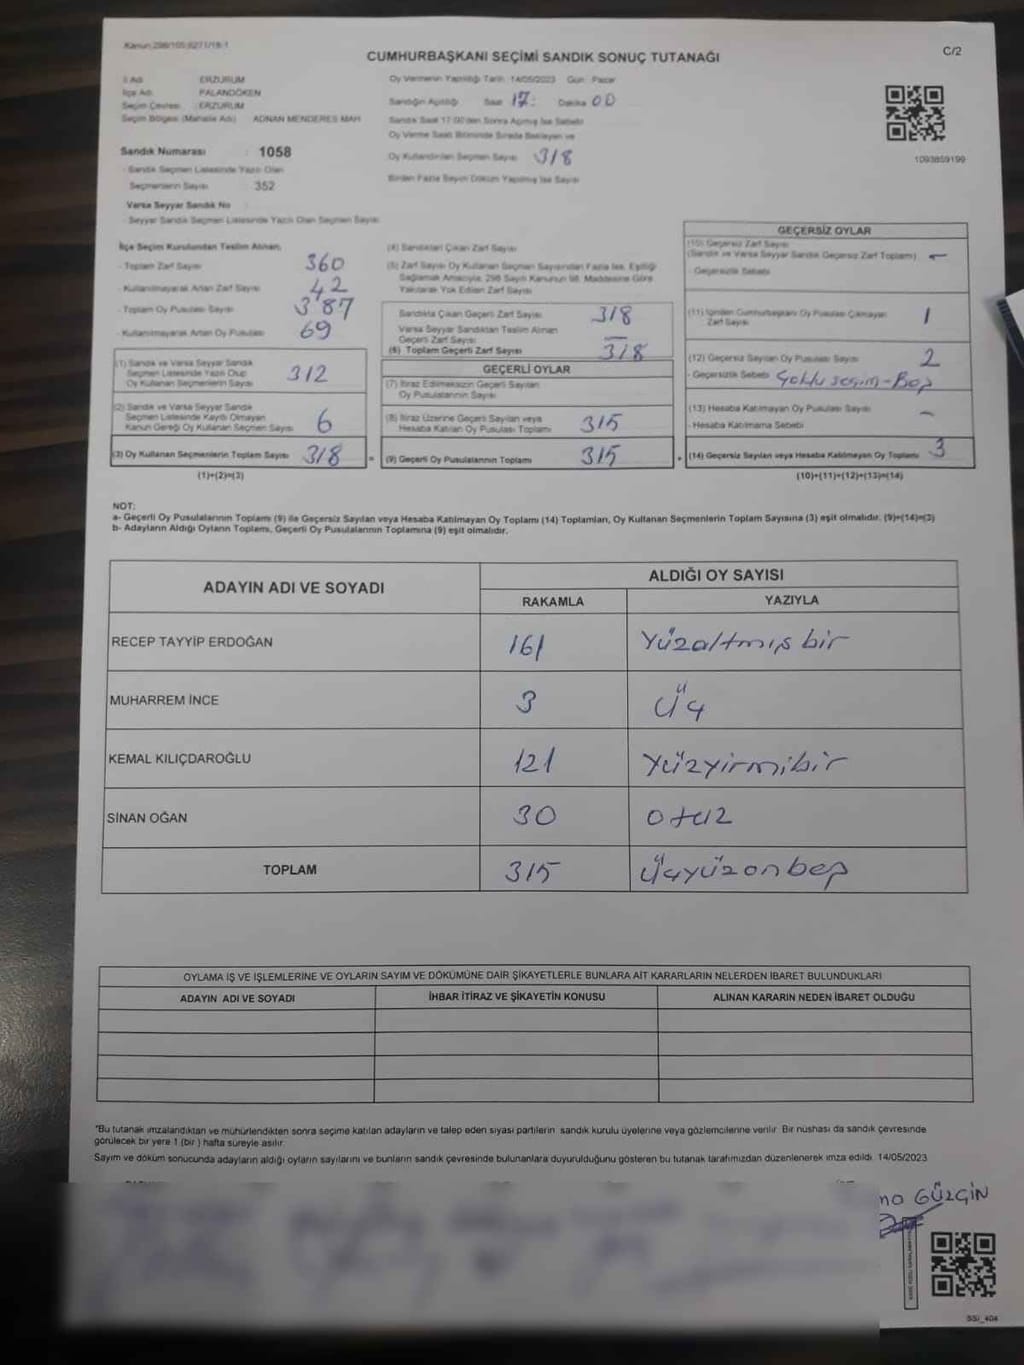 Kanun:298/105;6271/18-1
CUMHURBAŞKANI SEÇİMİ SANDIK SONUÇ TUTANAĞI
C/2
İl Adı : ERZURUM
İlçe Adı : PALANDÖKEN
Seçim Çevresi : ERZURUM
Seçim Bölgesi (Mahalle Adı) ADNAN MENDERES MAH
Oy Vermenin Yapıldığı Tarih: 14/05/2023 Gün: Pazar
Sandığın Açıldığı Saat 17: Dakika 00
Sandık Saat 17:00'den Sonra Açılmış İse Sebebi
Oy Verme Saati Bitiminde Sırada Bekleyen ve
Oy Kullandırılan Seçmen Sayısı 318
Birden Fazla Sayım Döküm Yapılmış İse Sayısı
1093859199
Sandık Numarası : 1058
- Sandık Seçmen Listesinde Yazılı Olan
Seçmenlerin Sayısı : 352
Varsa Seyyar Sandık No
- Seyyar Sandık Seçmen Listesinde Yazılı Olan Seçmen Sayısı
İlçe Seçim Kurulundan Teslim Alınan;
- Toplam Zarf Sayısı 360
- Kullanılmayarak Artan Zarf Sayısı 42
- Toplam Oy Pusulası Sayısı 387
- Kullanılmayarak Artan Oy Pusulası 69
(1) Sandık ve Varsa Seyyar Sandık
Seçmen Listesinde Yazılı Olup
Oy Kullanan Seçmenlerin Sayısı 312
(2) Sandık ve Varsa Seyyar Sandık
Seçmen Listesinde Kayıtlı Olmayan
Kanun Gereği Oy Kullanan Seçmen Sayısı 6
(3) Oy Kullanan Seçmenlerin Toplam Sayısı 318
(1)+(2)=(3)
(4) Sandıktan Çıkan Zarf Sayısı
(5) Zarf Sayısı Oy Kullanan Seçmen Sayısından Fazla İse, Eşitliği
Sağlamak Amacıyla, 298 Sayılı Kanunun 98. Maddesine Göre
Yakılarak Yok Edilen Zarf Sayısı
Sandıkta Çıkan Geçerli Zarf Sayısı 318
Varsa Seyyar Sandıktan Teslim Alınan
Geçerli Zarf Sayısı
(6) Toplam Geçerli Zarf Sayısı 318
GEÇERLİ OYLAR
(7) İtiraz Edilmeksizin Geçerli Sayılan
Oy Pusulalarının Sayısı
(8) İtiraz Üzerine Geçerli Sayılan veya
Hesaba Katılan Oy Pusulası Toplamı 315
= (9) Geçerli Oy Pusulalarının Toplamı 315
GEÇERSİZ OYLAR
(10) Geçersiz Zarf Sayısı
(Sandık ve Varsa Seyyar Sandık Geçersiz Zarf Toplamı) -
- Geçersizlik Sebebi
(11) İçinden Cumhurbaşkanı Oy Pusulası Çıkmayan
Zarf Sayısı 1
(12) Geçersiz Sayılan Oy Pusulası Sayısı 2
- Geçersizlik Sebebi Çoklu seçim - Boş
(13) Hesaba Katılmayan Oy Pusulası Sayısı -
- Hesaba Katılmama Sebebi
+ (14) Geçersiz Sayılan veya Hesaba Katılmayan Oy Toplamı 3
(10)+(11)+(12)+(13)=(14)
NOT:
a- Geçerli Oy Pusulalarının Toplamı (9) ile Geçersiz Sayılan veya Hesaba Katılmayan Oy Toplamı (14) Toplamları, Oy Kullanan Seçmenlerin Toplam Sayısına (3) eşit olmalıdır. (9)+(14)=(3)
b- Adayların Aldığı Oyların Toplamı, Geçerli Oy Pusulalarının Toplamına (9) eşit olmalıdır.
ADAYIN ADI VE SOYADI
ALDIĞI OY SAYISI
RAKAMLA YAZIYLA
RECEP TAYYİP ERDOĞAN 161 Yüzaltmış bir
MUHARREM İNCE 3 Üç
KEMAL KILIÇDAROĞLU 121 Yüzyirmibir
SİNAN OĞAN 30 Otuz
TOPLAM 315 Üçyüzonbeş
OYLAMA İŞ VE İŞLEMLERİNE VE OYLARIN SAYIM VE DÖKÜMÜNE DAİR ŞİKAYETLERLE BUNLARA AİT KARARLARIN NELERDEN İBARET BULUNDUKLARI
ADAYIN ADI VE SOYADI İHBAR İTİRAZ VE ŞİKAYETİN KONUSU ALINAN KARARIN NEDEN İBARET OLDUĞU
"Bu tutanak imzalandıktan ve mühürlendikten sonra seçime katılan adayların ve talep eden siyasi partilerin sandık kurulu üyelerine veya gözlemcilerine verilir. Bir nüshası da sandık çevresinde
görülecek bir yere 1 (bir ) hafta süreyle asılır.
Sayım ve döküm sonucunda adayların aldığı oyların sayılarını ve bunların sandık çevresinde bulunanlara duyurulduğunu gösteren bu tutanak tarafımızdan düzenlenerek imza edildi. 14/05/2023
GÜZGİN
SSİ_404